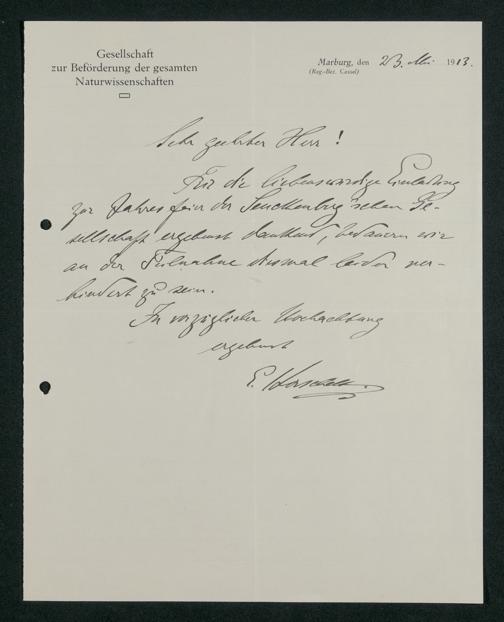 Gesellschaft
zur Beförderung der gesamten
Naturwissenschaften
Marburg, den 23. Mai 1913.
(Reg.-Bez. Cassel)
Sehr geehrter Herr!
Für die liebenswürdige Einladung
zur Jahresfeier der Senckenberg'schen Ge-
sellschaft ergebenst dankend, bedauern wir
an der Teilnahme diesmal leider ver-
hindert zu sein.
In vorzüglicher Hochachtung
ergebenst
E. Korschelt